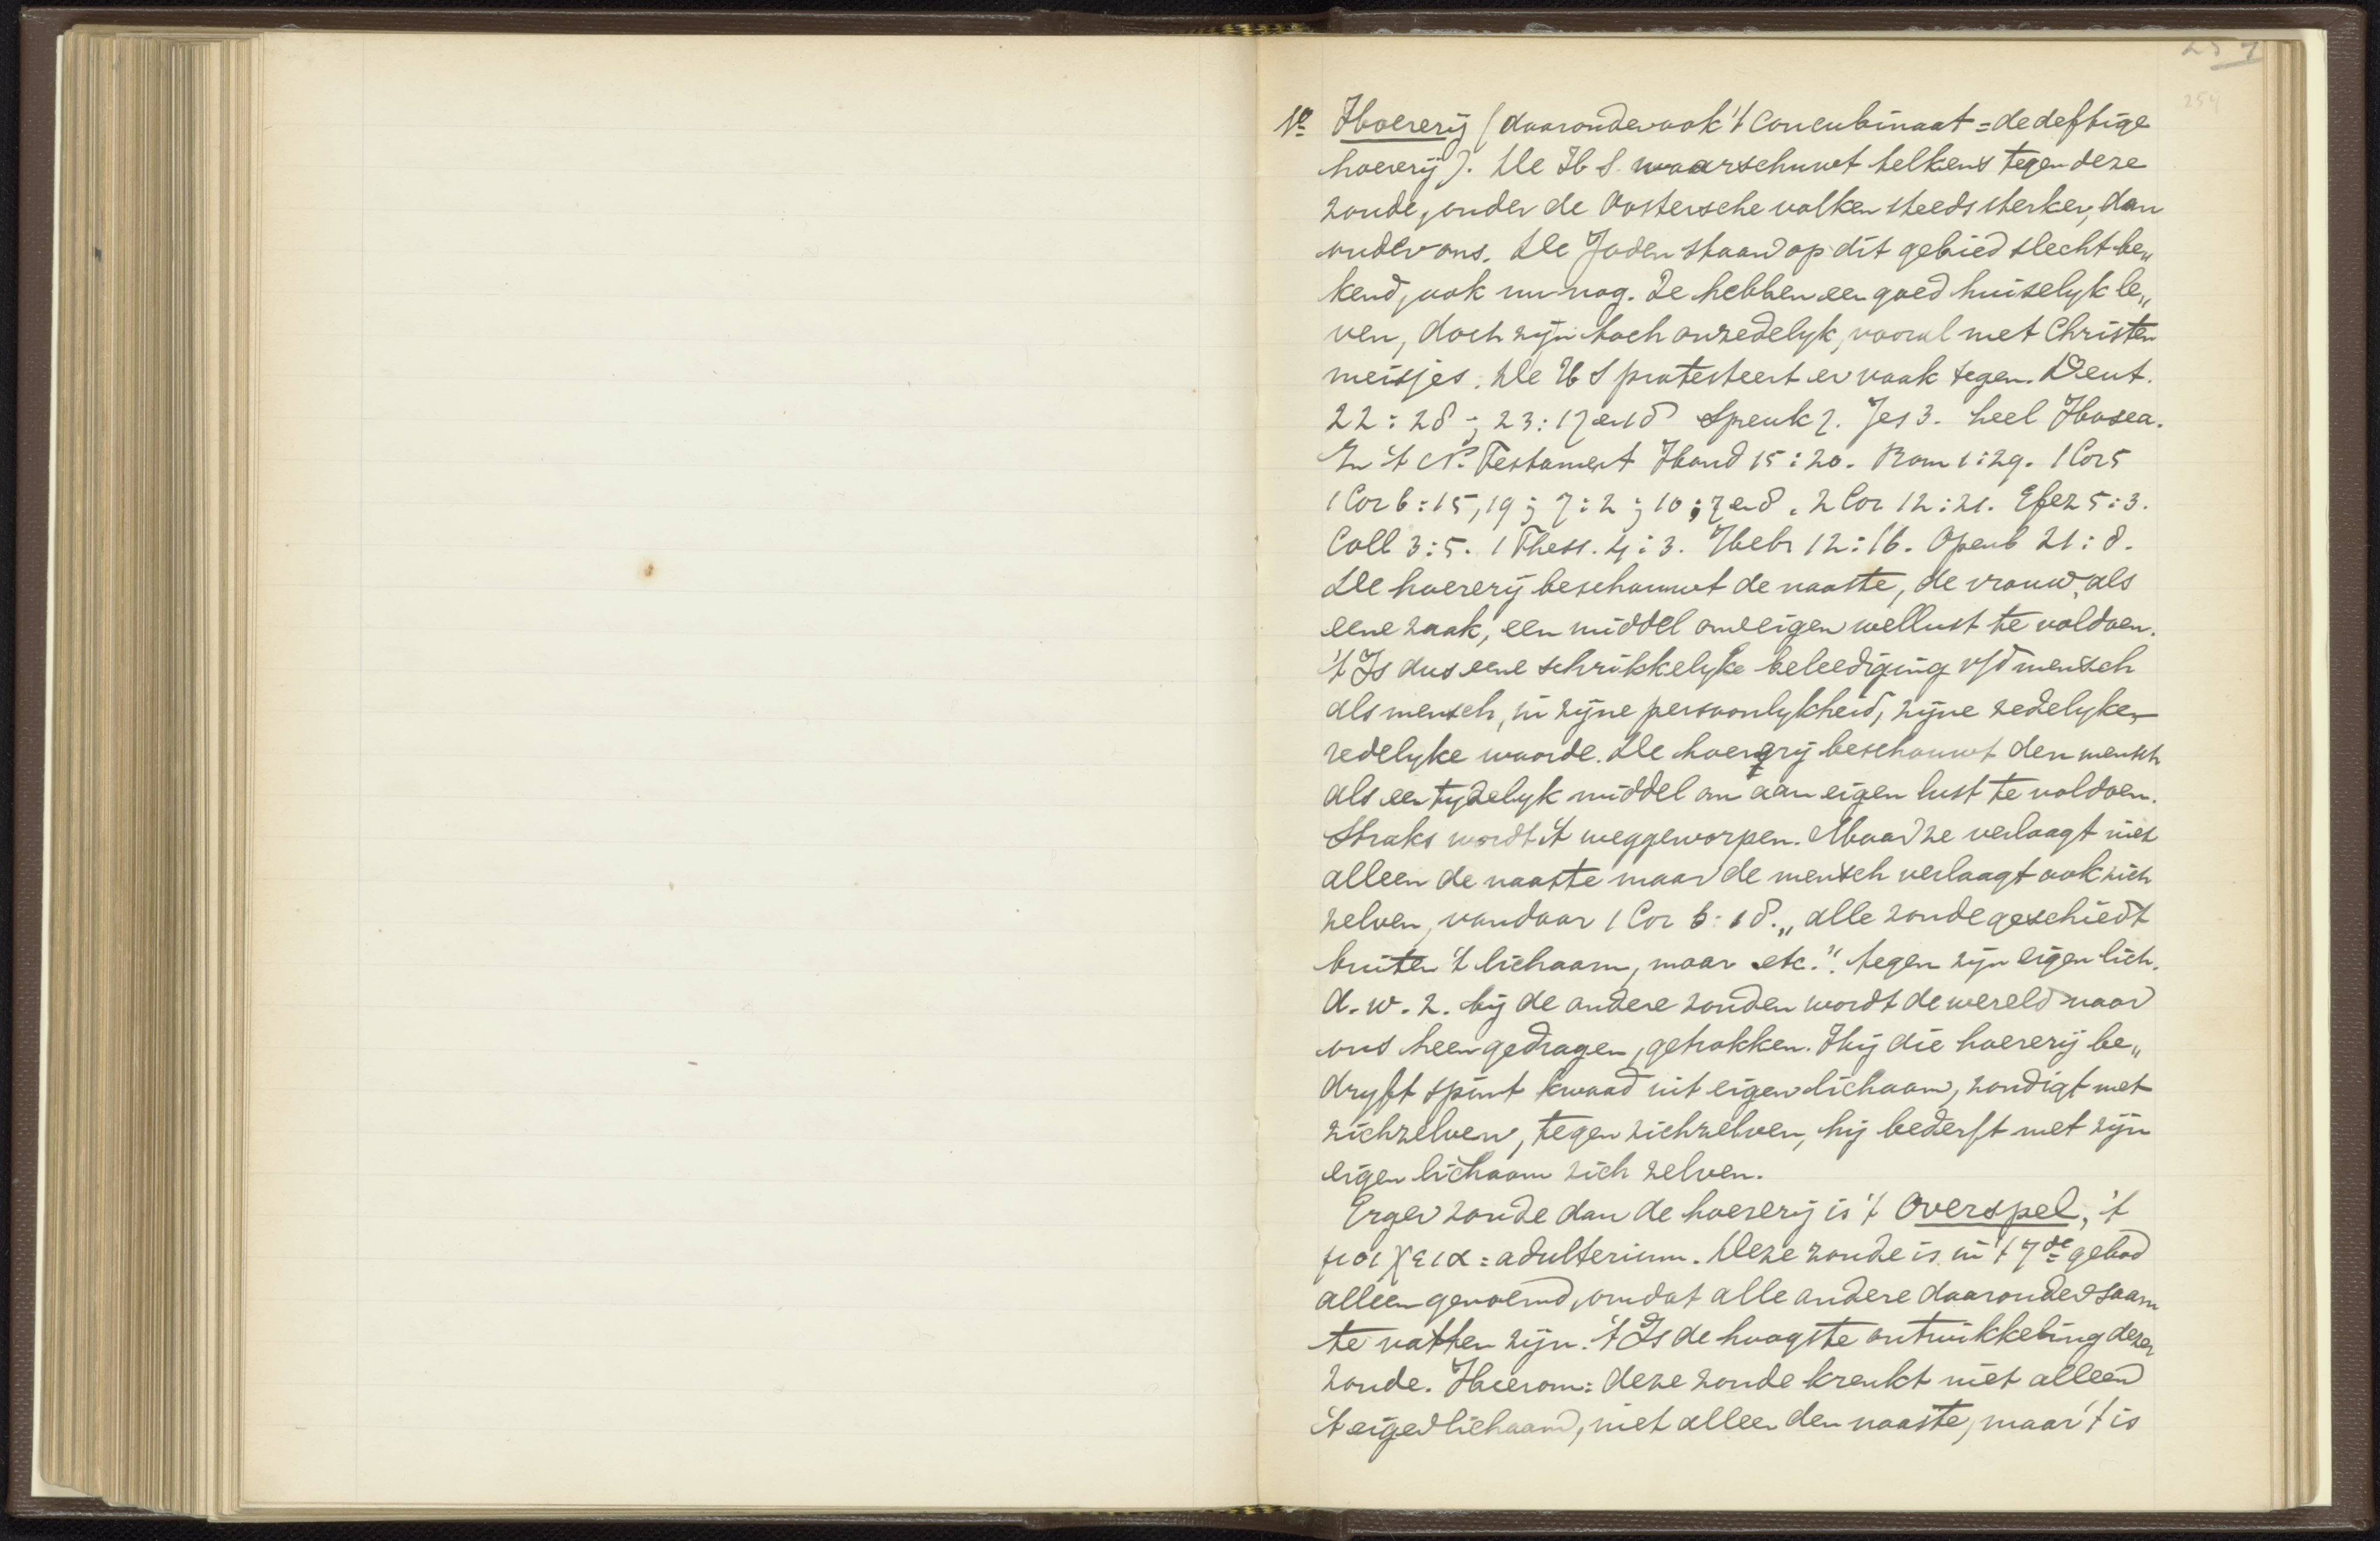 257
259
1º Hoererij (daaronder ook 't concubinaat = de deftige
hoererij). De H S. waarschuwt telkens tegen deze
zonde, onder de Oostersche volken steeds sterker, dan
onder ons. De Joden staan op dit gebied slecht be„
kend, ook nu nog. Ze hebben een goed huiselyk le„
ven, doch zyn toch onzedelyk, vooral met Christen
meisjes. De H S protesteert er vaak tegen. Deut.
22:28 ; 23:17 en 18 Spreuk 7. Jes 3. heel Hosea.
In 't N. Testament Hand 15:20. Rom 1:29. 1 Cor 5
1 Cor 6:15, 19 ; 7:2 ; 10:7 en 8. 2 Cor 12:21. Efez 5:3.
Coll 3:5. 1 Thess. 4:3. Hebr 12:16. Openb 21:8.
De hoererij beschouwt de naaste, de vrouw, als
eene zaak, een middel om eigen wellust te voldoen.
't Is dus eene schrikkelyke beleediging v/d mensch
als mensch, in zijne persoonlykheid, zijne zedelyke,
redelyke waarde. De hoererij beschouwt den mensch
als een tydelyk middel om aan eigen lust te voldoen.
Straks wordt 't weggeworpen. Maar ze verlaagt niet
alleen de naaste maar de mensch verlaagt ook zich
zelven, vandaar 1 Cor 6:18. „alle zonde geschiedt
buiten 't lichaam, maar etc." tegen zijn eigen lich.
d.w.z. bij de andere zonden wordt de wereld naar
ons heen gedragen, getrokken. Hij die hoererij be„
dryft spint kwaad uit eigen lichaam, zondigt met
zichzelven, tegen zichzelven, hij bederft met zijn
eigen lichaam zich zelven.
Erger zonde dan de hoererij is 't Overspel, 't
μοιχεια = adulterium. Deze zonde is in 't 7de gebod
alleen genoemd, omdat alle andere daaronder saam
te vatten zijn. 't Is de hoogste ontwikkeling dezer
zonde. Hierom: deze zonde krenkt niet alleen
't eigen lichaam, niet alleen den naaste, maar 't is